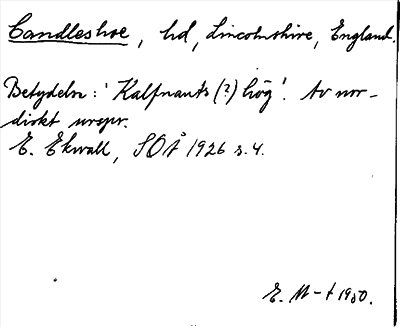 Candleshoe, hd, Lincolnshire, England.
Betydelse: 'Kalfnants(?) hög'. Av nor-
diskt urspr.
E. Ekwall, SOÅ 1926 s. 4.
E. M-t 1950.